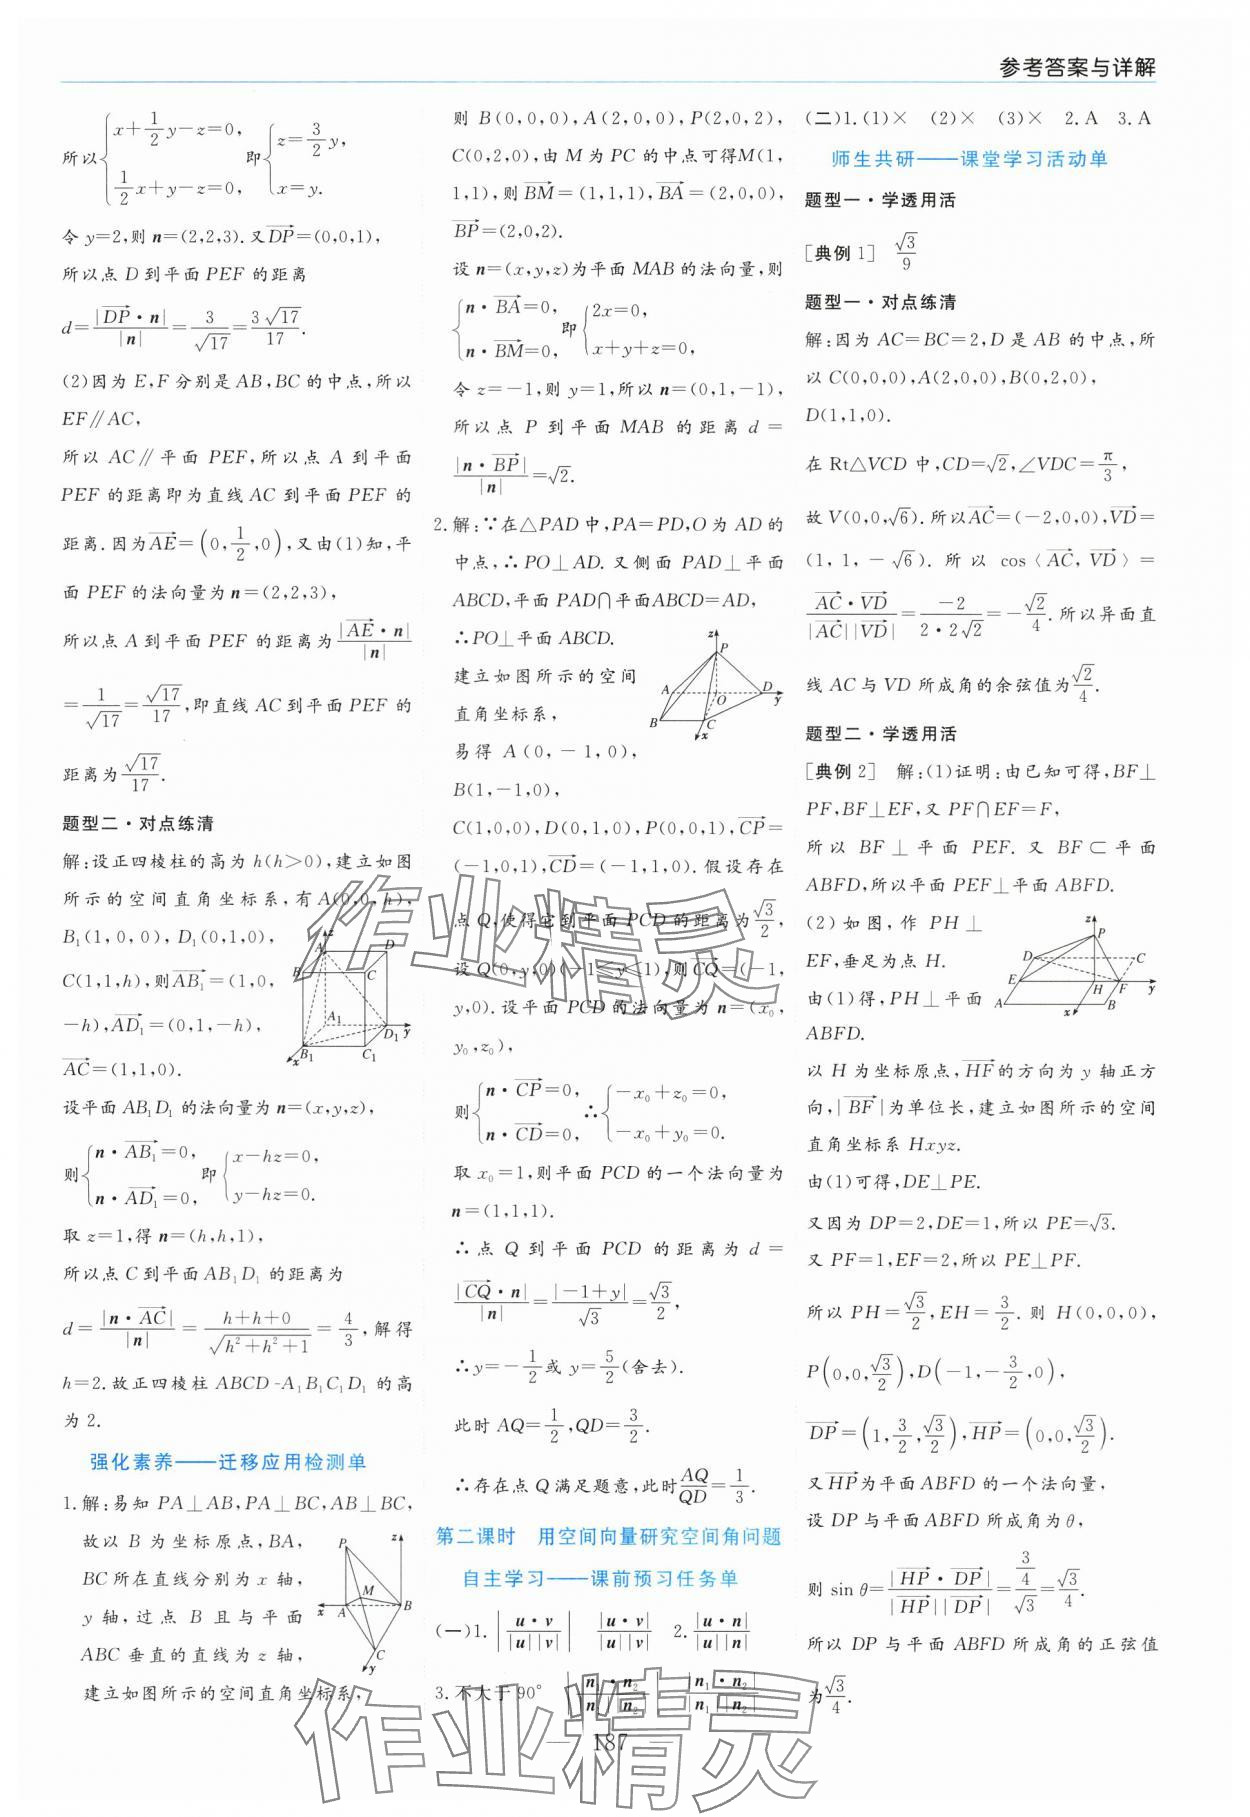 参考答案与详解
所以{x+1/2y-z=0, 1/2x+y-z=0, 即{z=3/2y, x=y.
令 y=2,则 n=(2,2,3).又DP→=(0,0,1),
所以点 D 到平面 PEF 的距离
d=|DP→·n|/|n|=3/√17=3√17/17.
(2)因为 E,F 分别是 AB,BC 的中点,所以
EF∥AC,
所以 AC∥平面 PEF,所以点 A 到平面
PEF 的距离即为直线 AC 到平面 PEF 的
距离.因为AE→=(0,1/2,0),又由(1)知,平
面 PEF 的法向量为 n=(2,2,3),
所以点 A 到平面 PEF 的距离为|AE→·n|/|n|
=1/√17=√17/17,即直线 AC 到平面 PEF 的
距离为√17/17.
题型二·对点练清
解:设正四棱柱的高为 h(h>0),建立如图
所示的空间直角坐标系,有 A(0,0,h),
B₁(1,0,0),D₁(0,1,0),
C(1,1,h),则AB₁→=(1,0,
-h),AD₁→=(0,1,-h),
AC→=(1,1,0).
设平面 AB₁D₁ 的法向量为 n=(x,y,z),
则{n·AB₁→=0, n·AD₁→=0, 即{x-hz=0, y-hz=0.
取 z=1,得 n=(h,h,1),
所以点 C 到平面 AB₁D₁ 的距离为
d=|n·AC→|/|n|=(h+h+0)/√(h²+h²+1)=4/3,解得
h=2.故正四棱柱 ABCD-A₁B₁C₁D₁ 的高
为 2.
强化素养——迁移应用检测单
1.解:易知 PA⊥AB,PA⊥BC,AB⊥BC,
故以 B 为坐标原点,BA,
BC 所在直线分别为 x 轴,
y 轴,过点 B 且与平面
ABC 垂直的直线为 z 轴,
建立如图所示的空间直角坐标系,
则 B(0,0,0),A(2,0,0),P(2,0,2),
C(0,2,0),由 M 为 PC 的中点可得M(1,
1,1),则BM→=(1,1,1),BA→=(2,0,0),
BP→=(2,0,2).
设 n=(x,y,z)为平面 MAB 的法向量,则
{n·BA→=0, n·BM→=0, 即{2x=0, x+y+z=0,
令 z=-1,则 y=1,所以 n=(0,1,-1),
所以点 P 到平面 MAB 的距离 d=
|n·BP→|/|n|=√2.
2.解:∵在△PAD 中,PA=PD,O 为 AD 的
中点,∴PO⊥AD.又侧面 PAD⊥平面
ABCD,平面 PAD∩平面ABCD=AD,
∴PO⊥平面 ABCD.
建立如图所示的空间
直角坐标系,
易得 A(0,-1,0),
B(1,-1,0),
C(1,0,0),D(0,1,0),P(0,0,1),CP→=
(-1,0,1),CD→=(-1,1,0).假设存在
点 Q,使得它到平面 PCD 的距离为√3/2,
设 Q(0,y,0)(-1≤y≤1),则CQ→=(-1,
y,0).设平面 PCD 的法向量为 n=(x₀,
y₀,z₀),
则{n·CP→=0, n·CD→=0, ∴{-x₀+z₀=0, -x₀+y₀=0.
取 x₀=1,则平面 PCD 的一个法向量为
n=(1,1,1).
∴点 Q 到平面 PCD 的距离为 d=
|CQ→·n|/|n|=|-1+y|/√3=√3/2,
∴y=-1/2或 y=5/2(舍去).
此时 AQ=1/2,QD=3/2.
∴存在点 Q 满足题意,此时AQ/QD=1/3.
第二课时 用空间向量研究空间角问题
自主学习——课前预习任务单
(一)1.|u·v/|u||v|| |u·v|/|u||v| 2.|u·n|/|u||n|
3.不大于90° |n₁·n₂/|n₁||n₂|| |n₁·n₂|/|n₁||n₂|
(二)1.(1)× (2)× (3)× 2.A 3.A
师生共研——课堂学习活动单
题型一·学透用活
[典例1] √3/9
题型一·对点练清
解:因为 AC=BC=2,D 是 AB 的中点,所
以 C(0,0,0),A(2,0,0),B(0,2,0),
D(1,1,0).
在 Rt△VCD 中,CD=√2,∠VDC=π/3,
故 V(0,0,√6).所以AC→=(-2,0,0),VD→=
(1,1,-√6).所以 cos〈AC→,VD→〉=
AC→·VD→/|AC→||VD→|=-2/2·2√2=-√2/4.所以异面直
线 AC 与 VD 所成角的余弦值为√2/4.
题型二·学透用活
[典例2] 解:(1)证明:由已知可得,BF⊥
PF,BF⊥EF,又 PF∩EF=F,
所以 BF⊥平面 PEF.又 BF⊂平面
ABFD,所以平面 PEF⊥平面 ABFD.
(2)如图,作 PH⊥
EF,垂足为点 H.
由(1)得,PH⊥平面
ABFD.
以 H 为坐标原点,HF→的方向为 y 轴正方
向,|BF→|为单位长,建立如图所示的空间
直角坐标系 Hxyz.
由(1)可得,DE⊥PE.
又因为 DP=2,DE=1,所以 PE=√3.
又 PF=1,EF=2,所以 PE⊥PF.
所以 PH=√3/2,EH=3/2.则 H(0,0,0),
P(0,0,√3/2),D(-1,-3/2,0),
DP→=(1,3/2,√3/2),HP→=(0,0,√3/2).
又HP→为平面 ABFD 的一个法向量,
设 DP 与平面 ABFD 所成角为 θ,
则 sin θ=|HP→·DP→|/|HP→||DP→|=(3/4)/√3=√3/4.
所以 DP 与平面 ABFD 所成角的正弦值
为√3/4.
作业精灵
作业精灵
187